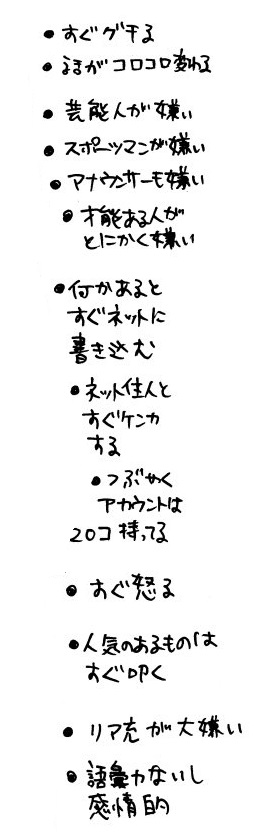 • すぐグチる
• 話がコロコロ変わる
• 芸能人が嫌い
• スポーツマンが嫌い
• アナウンサーも嫌い
• 才能ある人が
とにかく嫌い
• 何かあると
すぐネットに
書き込む
• ネット住人と
すぐケンカ
する
• つぶやく
アカウントは
20コ持ってる
• すぐ怒る
• 人気のあるものは
すぐ叩く
• リア充が大嫌い
• 語彙力ないし
感情的